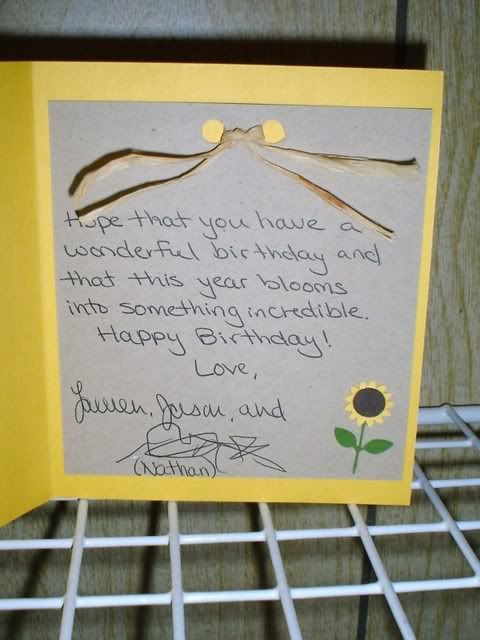 Hope that you have a
wonderful birthday and
that this year blooms
into something incredible.
Happy Birthday!
Love,
Lauren, Jason, and
(Nathan)